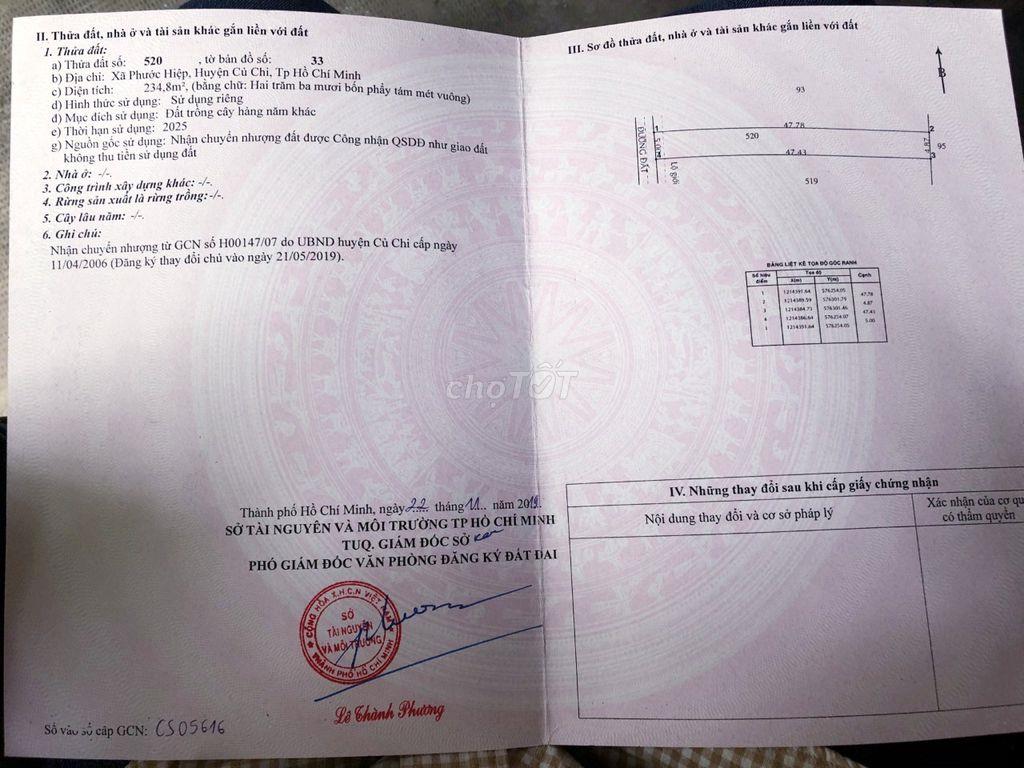 II. Thửa đất, nhà ở và tài sản khác gắn liền với đất
1. Thửa đất:
a) Thửa đất số: 520 , tờ bản đồ số: 33
b) Địa chỉ: Xã Phước Hiệp, Huyện Củ Chi, Tp Hồ Chí Minh
c) Diện tích: 234,8m², (bằng chữ: Hai trăm ba mươi bốn phẩy tám mét vuông)
d) Hình thức sử dụng: Sử dụng riêng
đ) Mục đích sử dụng: Đất trồng cây hàng năm khác
e) Thời hạn sử dụng: 2025
g) Nguồn gốc sử dụng: Nhận chuyển nhượng đất được Công nhận QSDĐ như giao đất
không thu tiền sử dụng đất
2. Nhà ở: -/-.
3. Công trình xây dựng khác: -/-.
4. Rừng sản xuất là rừng trồng:-/-.
5. Cây lâu năm: -/-.
6. Ghi chú:
Nhận chuyển nhượng từ GCN số H00147/07 do UBND huyện Củ Chi cấp ngày
11/04/2006 (Đăng ký thay đổi chủ vào ngày 21/05/2019).
Thành phố Hồ Chí Minh, ngày 22 tháng 11 năm 2019
SỞ TÀI NGUYÊN VÀ MÔI TRƯỜNG TP HỒ CHÍ MINH
TUQ. GIÁM ĐỐC SỞ
PHÓ GIÁM ĐỐC VĂN PHÒNG ĐĂNG KÝ ĐẤT ĐAI
CỘNG HÒA X.H.C.N VIỆT NAM
SỞ
TÀI NGUYÊN
VÀ MÔI TRƯỜNG
THÀNH PHỐ HỒ CHÍ MINH
Lê Thành Phương
Số vào sổ cấp GCN: CS05616
III. Sơ đồ thửa đất, nhà ở và tài sản khác gắn liền với đất
B
93
1 47.78 2
520
ĐƯỜNG ĐẤT
5.00
4.87
95
47.43 3
Lộ giới
519
BẢNG LIỆT KÊ TỌA ĐỘ GÓC RANH
Số hiệu điểm Tọa độ Cạnh
X(m) Y(m)
1 1214391.64 576254.05
47.78
2 1214389.59 576301.79
4.87
3 1214384.73 576301.46
47.43
4 1214386.64 576254.07
5.00
1 1214391.64 576254.05
chợTỐT
IV. Những thay đổi sau khi cấp giấy chứng nhận
Nội dung thay đổi và cơ sở pháp lý
Xác nhận của cơ qu
có thẩm quyền